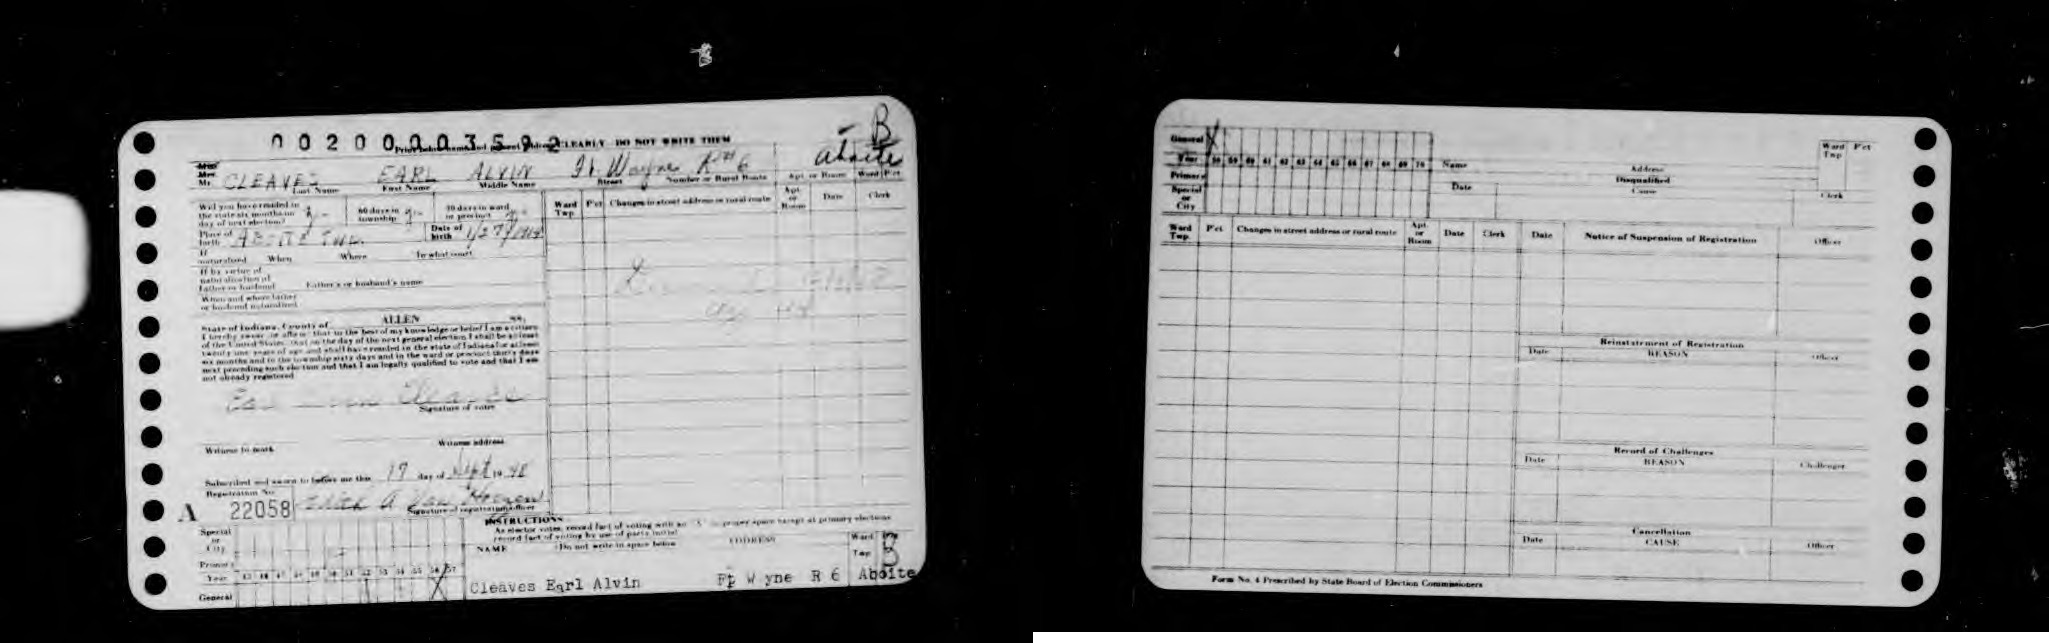 0020000359 2
Print below name and present address CLEARLY DO NOT WRITE THEM
B
Aboite
Miss
Mrs.
Mr. CLEAVES EARL ALVIN Ft. Wayne R# 6
Last Name First Name Middle Name Street Number or Rural Route Apt. or Room Ward P'ct
Will you have resided in the state six months on day of next election? 60 days in township 30 days in ward or precinct
Place of birth ABOITE TWP. Date of birth 1/27/1914
If naturalized When Where In what court
If by virtue of naturalization of Father or husband Father's or husband's name
When and where father or husband naturalized
State of Indiana, County of ALLEN ss.
I hereby swear or affirm that to the best of my knowledge or belief I am a citizen
of the United States, that on the day of the next general election I shall be at least
twenty one years of age and shall have resided in the state of Indiana for at least
six months and in the township sixty days and in the ward or precinct thirty days
next preceding such election and that I am legally qualified to vote and that I am
not already registered
Earl Cleaves
Signature of voter
Witness to mark Witness address
Subscribed and sworn to before me this 17 day of Sept 19 48
Registration No.
A 22058
Signature of registration officer
Ward Twp P'ct Changes in street address or rural route Apt. or Room Date Clerk
INSTRUCTIONS
As elector votes, record fact of voting with an "X" in proper space except at primary elections
record fact of voting by use of party initial
NAME (Do not write in space below ADDRESS Ward Twp P'ct
B
Cleaves Earl Alvin Ft W yne R 6 Aboite
Special or City
Primary
Year 45 46 47 48 49 50 51 52 53 54 55 56 57
General X
General X
Year 58 59 60 61 62 63 64 65 66 67 68 69 70
Primary
Special or City
Name Address Ward Twp P'ct
Disqualified
Date Cause Clerk
Ward Twp. P'ct Changes in street address or rural route Apt. or Room Date Clerk
Date Notice of Suspension of Registration Officer
Reinstatement of Registration
Date REASON Officer
Record of Challenges
Date REASON Challenger
Cancellation
Date CAUSE Officer
Form No. 4 Prescribed by State Board of Election Commissioners